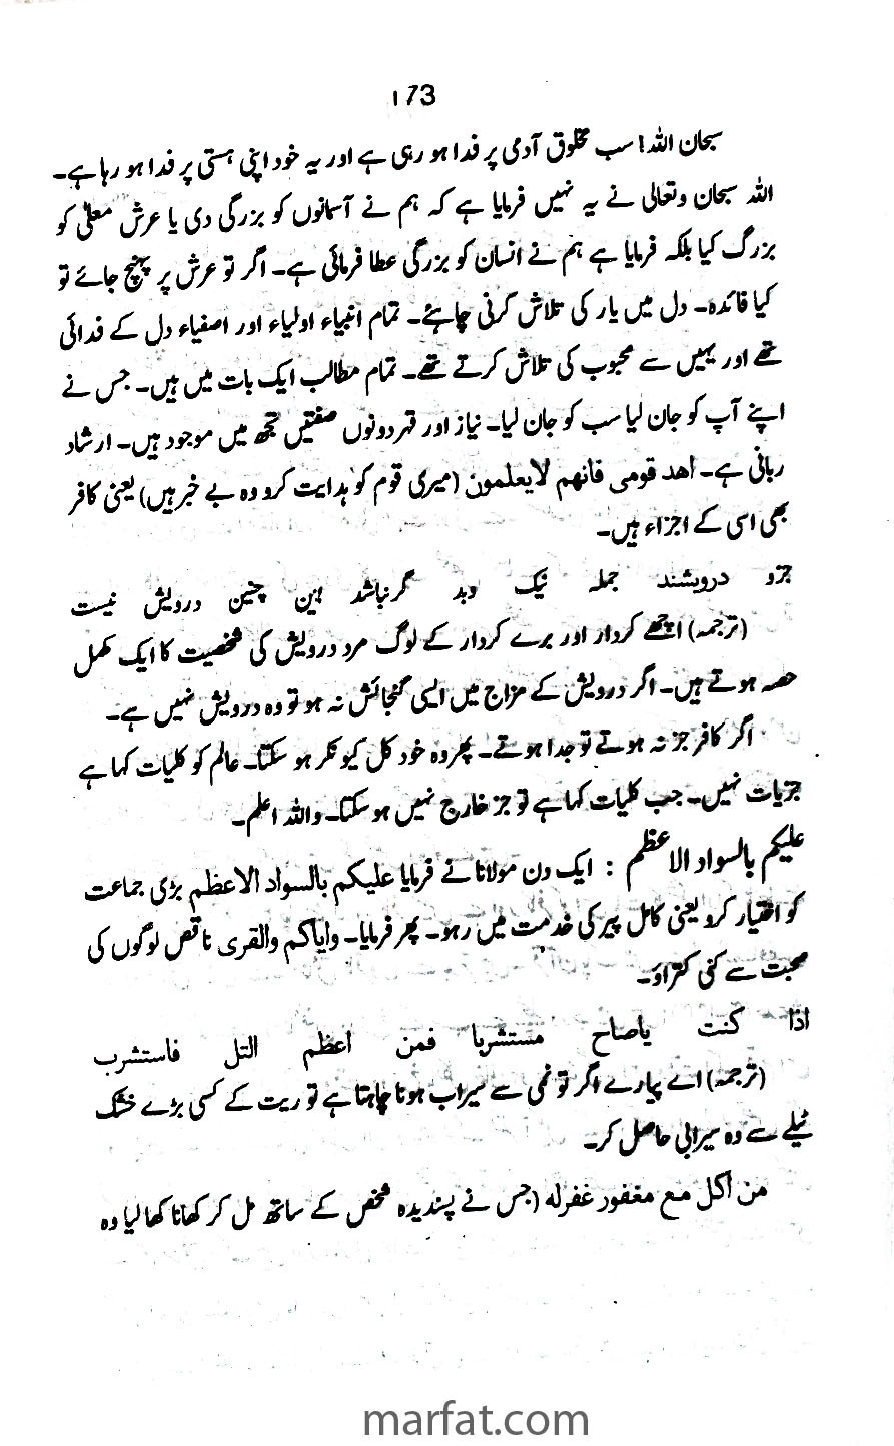 173
سبحان اللہ! سب مخلوق آدمی پر فدا ہو رہی ہے اور یہ خود اپنی ہستی پر فدا ہو رہا ہے۔
اللہ سبحان وتعالی نے یہ نہیں فرمایا ہے کہ ہم نے آسمانوں کو بزرگی دی یا عرش معلّی کو
بزرگ کیا بلکہ فرمایا ہے ہم نے انسان کو بزرگی عطا فرمائی ہے۔ اگر تو عرش پر پہنچ جائے تو
کیا فائدہ۔ دل میں یار کی تلاش کرنی چاہئے۔ تمام انبیاء اولیاء اور اصفیاء دل کے فدائی
تھے اور یہیں سے محبوب کی تلاش کرتے تھے۔ تمام مطالب ایک بات میں ہیں۔ جس نے
اپنے آپ کو جان لیا سب کو جان لیا۔ نیاز اور قہر دونوں صفتیں تجھ میں موجود ہیں۔ ارشاد
ربانی ہے۔ اھد قومی فانھم لایعلمون (میری قوم کو ہدایت کرو وہ بے خبر ہیں) یعنی کافر
بھی اسی کے اجزاء ہیں۔
جزو درویشند جملہ نیک وبد گر نباشد این چنین درویش نیست
(ترجمہ) اچھے کردار اور برے کردار کے لوگ مرد درویش کی شخصیت کا ایک مکمل
حصہ ہوتے ہیں۔ اگر درویش کے مزاج میں ایسی گنجائش نہ ہو تو وہ درویش نہیں ہے۔
اگر کافر جز نہ ہوتے تو جدا ہوتے۔ پھر وہ خود کل کیونکر ہو سکتا۔ عالم کو کلیات کہا ہے
جزیات نہیں۔ جب کلیات کہا ہے تو جز خارج نہیں ہو سکتا۔ واللہ اعلم۔
علیکم بالسواد الاعظم : ایک دن مولانا نے فرمایا علیکم بالسواد الاعظم بڑی جماعت
کو اختیار کرو یعنی کامل پیر کی خدمت میں رہو۔ پھر فرمایا۔ وایاکم والقری ناقص لوگوں کی
صحبت سے کنی کتراؤ۔
اذا کنت یاصاح مستشربا فمن اعظم التل فاستشرب
(ترجمہ) اے پیارے اگر تو نمی سے سیراب ہونا چاہتا ہے تو ریت کے کسی بڑے خشک
ٹیلے سے وہ سیرابی حاصل کر۔
من اکل مع مغفور غفرله (جس نے پسندیدہ شخص کے ساتھ مل کر کھانا کھا لیا وہ
marfat.com